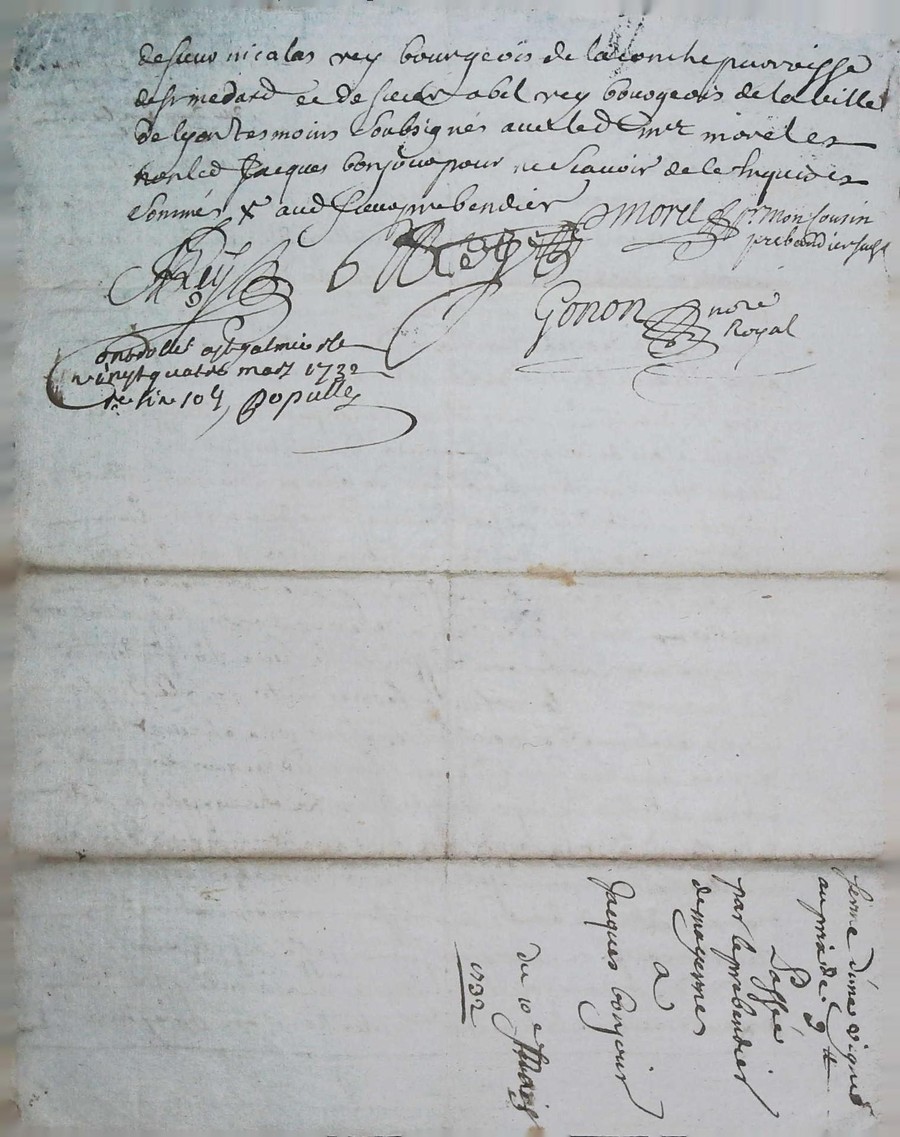 de sieur nicolas rey bourgeois de laconche parroisse
de st medard et de sieur abel rey bourgeois de la ville
de lyon tesmoins soubsignés avec led mre morel et
non led Jacques bonjour pour ne scavoir de le enquis et
sommés x aud sieur prebendier
morel pr mon cousin
prebandier susd
ARey
Rey
Gonon nore
Royal
Controllé a st galmier le
vingt quatre mars 1732
Populle
ferme dune vigne
au prix de 9 tt
passée
par le prebendier
demayenne
a
Jacques bonjour
du 10e mars
1732